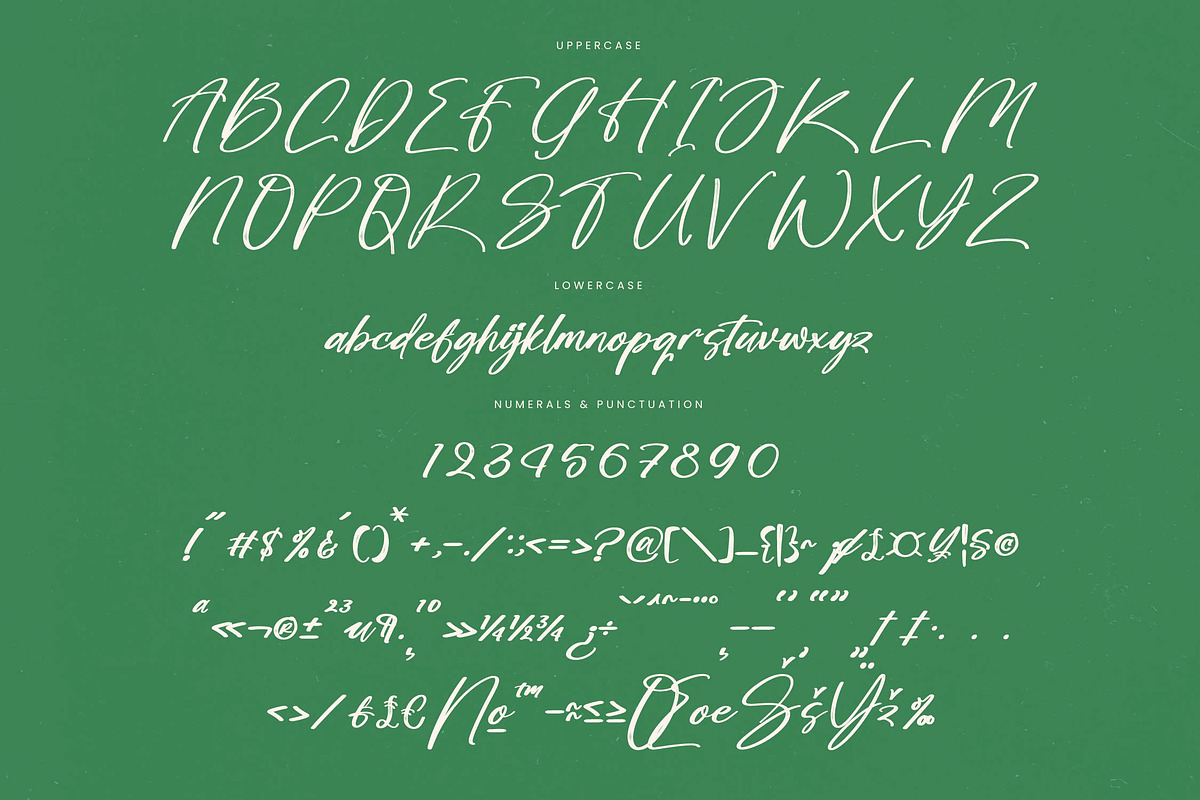 UPPERCASE
ABCDEFGHIJKLM
NOPQRSTUVWXYZ
LOWERCASE
abcdefghijklmnopqrstuvwxyz
NUMERALS & PUNCTUATION
1234567890
!"#$%&'()*+,-./:;<=>?@[\]_{|}~ ¢£¤¥¦§©
ª«¬®±²³µ¶·¸¹º»¼½¾¿÷ ˇˆ˜¯˙ ‚–— ‘’ “” „ †‡•…
‹›⁄₣₤€№™−≈≤≥ŒœŠšŸž‰